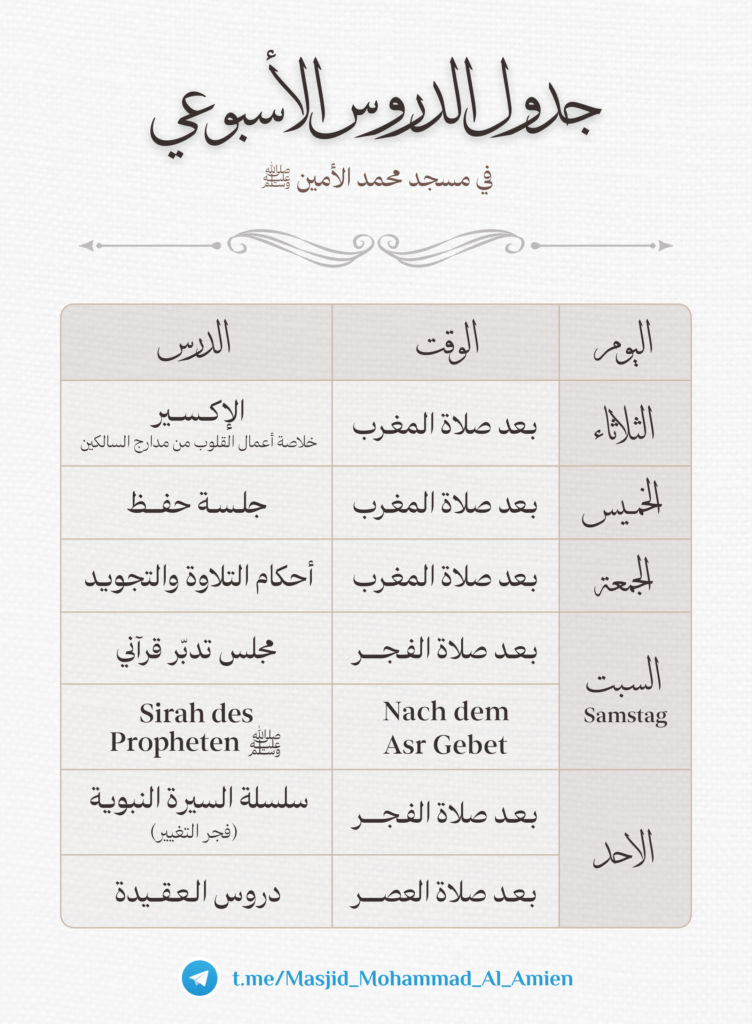 جدول الدروس الأسبوعي
في مسجد محمد الأمين ﷺ
اليوم
الوقت
الدرس
الثلاثاء
بعد صلاة المغرب
الإكسير
خلاصة أعمال القلوب من مدارج السالكين
الخميس
بعد صلاة المغرب
جلسة حفظ
الجمعة
بعد صلاة المغرب
أحكام التلاوة والتجويد
السبت
Samstag
بعد صلاة الفجر
مجلس تدبّر قرآني
Nach dem
Asr Gebet
Sirah des
Propheten ﷺ
الاحد
بعد صلاة الفجر
سلسلة السيرة النبوية
(فجر التغيير)
بعد صلاة العصر
دروس العقيدة
t.me/Masjid_Mohammad_Al_Amien